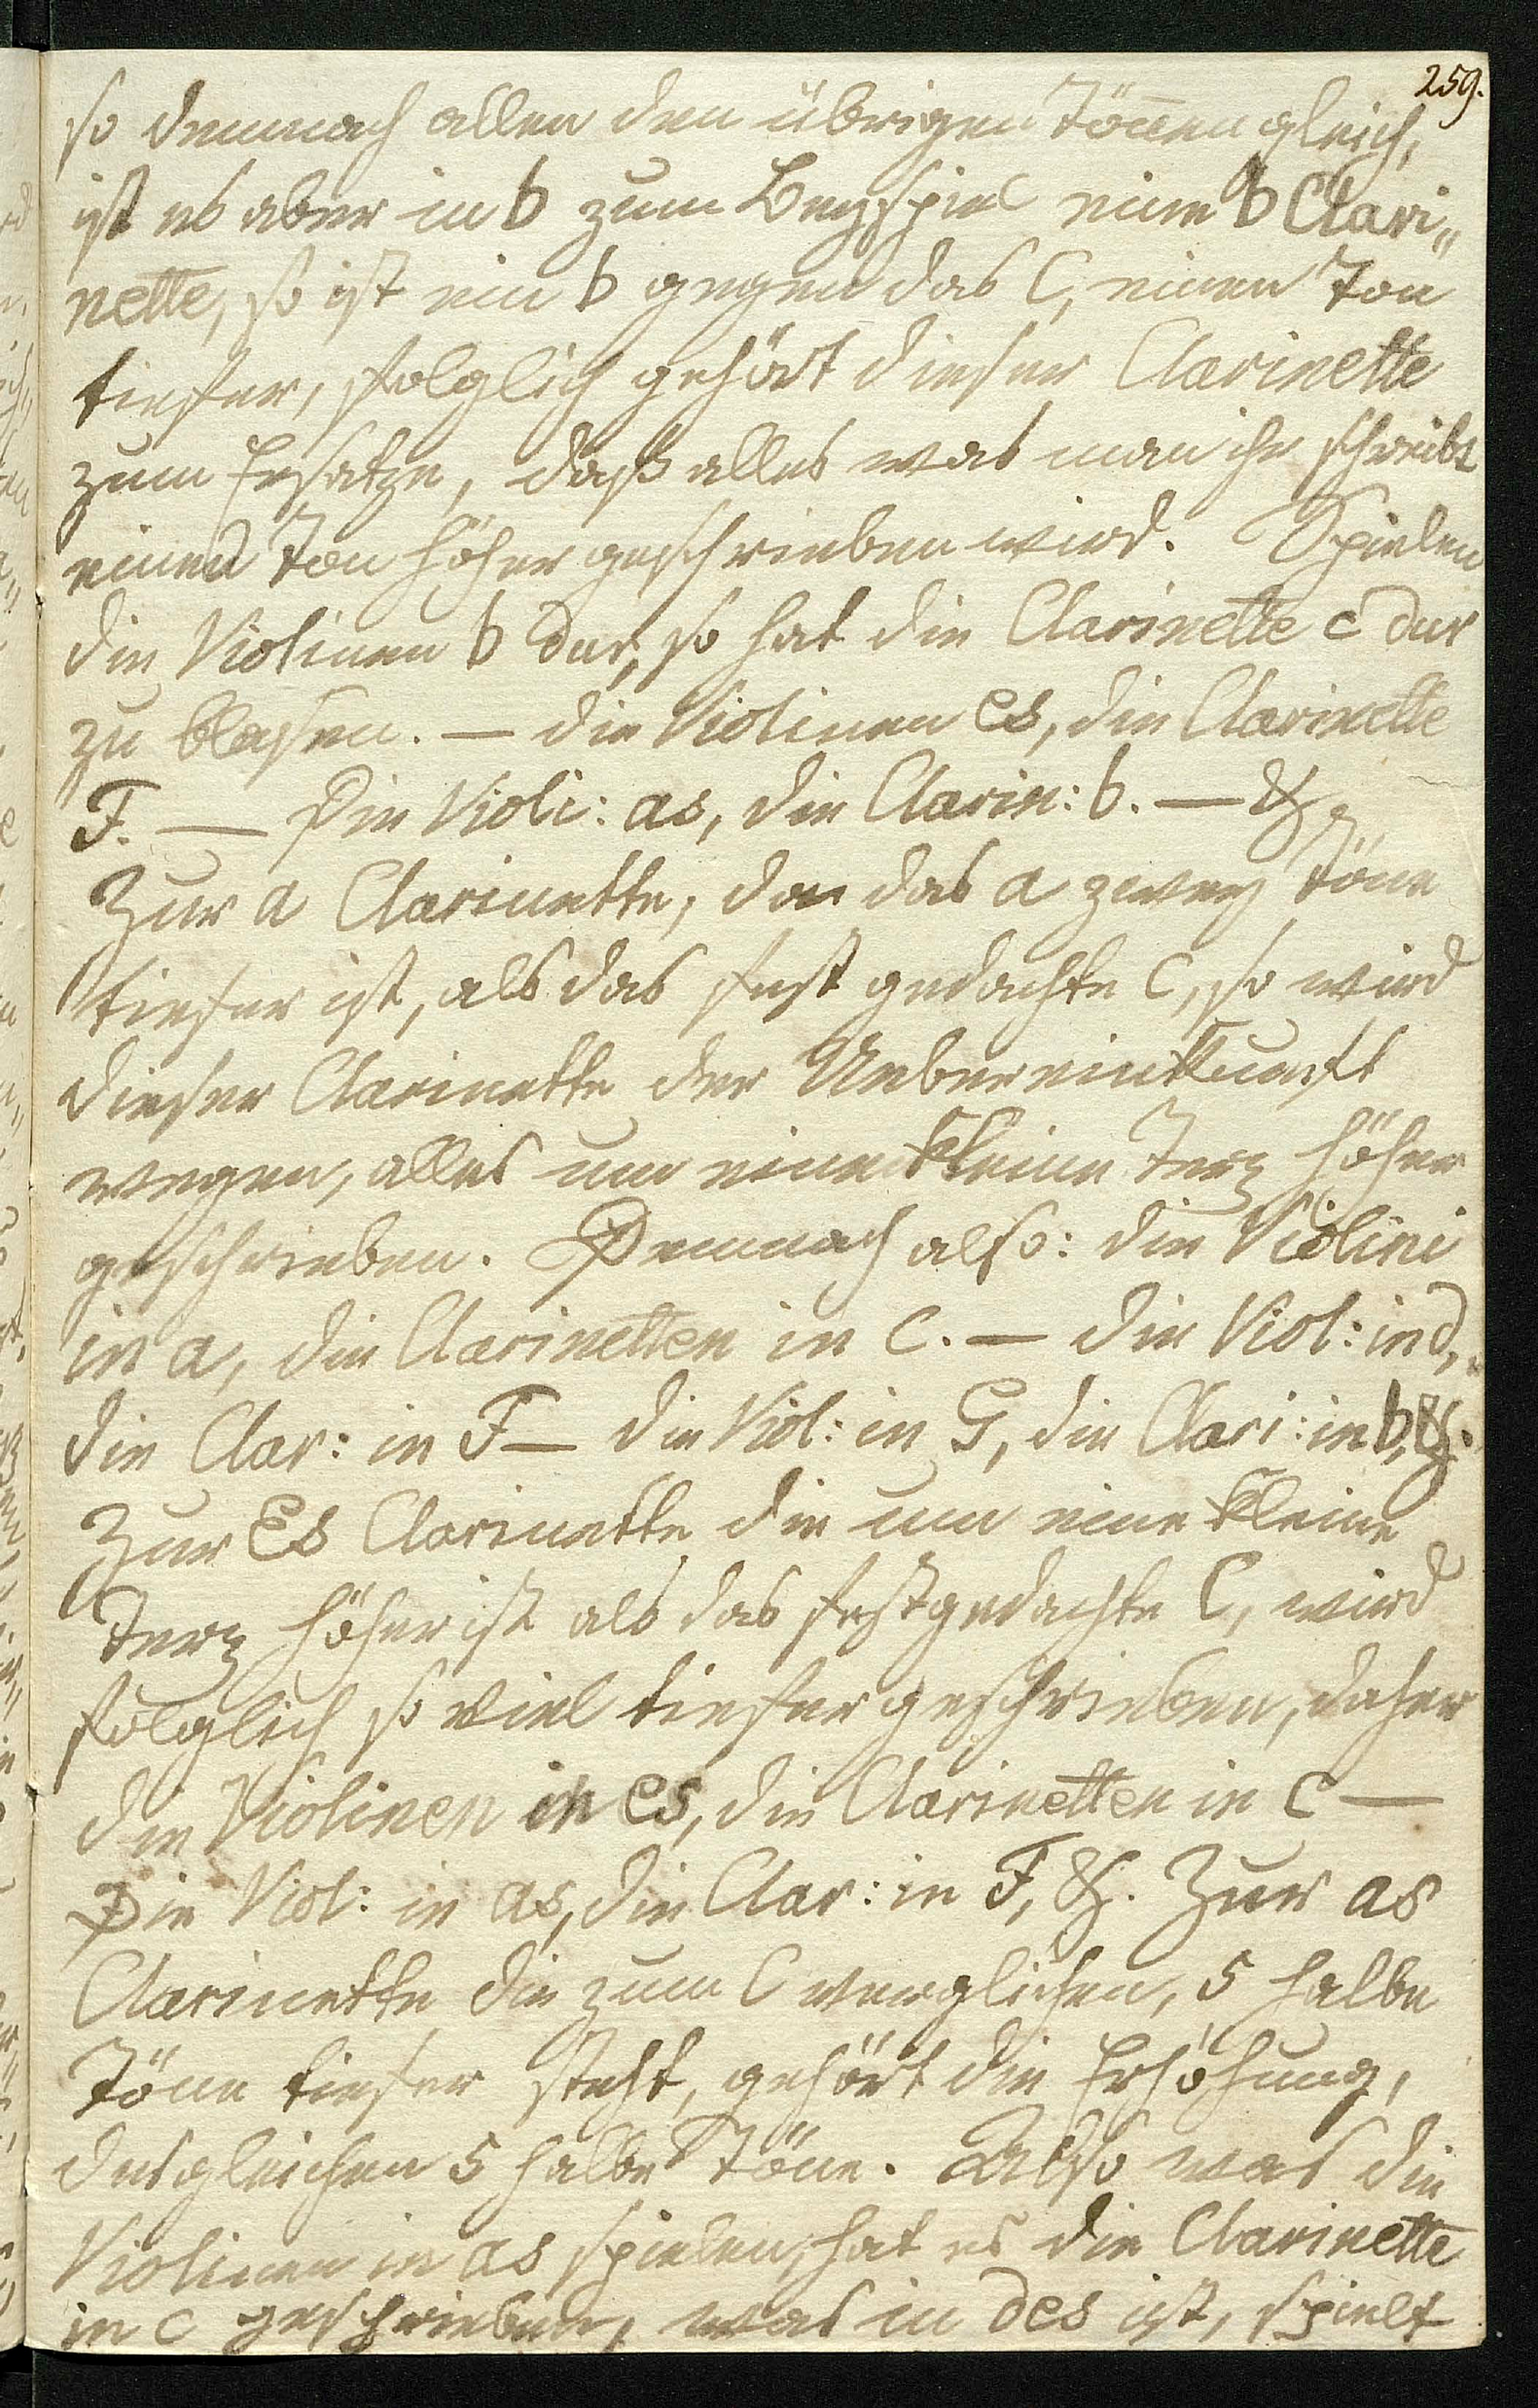 259.
so demnach allen den übrigen Tönen gleich,
ist es aber in b zum Beyspiel eine b Clari„
nette, so ist ein b gegen das C, einen Ton
tiefer, folglich gehört dieser Clarinette
zum Ersatze, daß alles was man ihr schreibt
einen Ton höher geschrieben wird. Spielen
die Violinen b dur, so hat die Clarinette c dur
zu blasen. — die Violinen es, die Clarinette
F. — Die Violi: as, die Clarin: b. — &
Zur a Clarinette, da das a zwey Töne
tiefer ist, als das fest gedachte C, so wird
dieser Clarinette der Uebereinkunft
wegen, alles um eine kleine Terz höher
geschrieben. Demnach also: die Violini
in a, die Clarinetten in C. — die Viol: in d,
die Clar: in F — die Viol: in G, die Clari: in b, &.
Zur Es Clarinette die um eine kleine
Terz höher ist als das festgedachte C, wird
folglich so viel tiefer geschrieben, daher
die Violinen in es, die Clarinetten in C —
Die Viol: in as, die Clar: in F, &. Zur as
Clarinette die zum C verglichen, 5 halbe
Töne tiefer steht, gehört die Erhöhung,
desgleichen 5 halbe Töne. Also was die
Violinen in as spielen, hat es die Clarinette
in c geschrieben, was in des ist, spielt